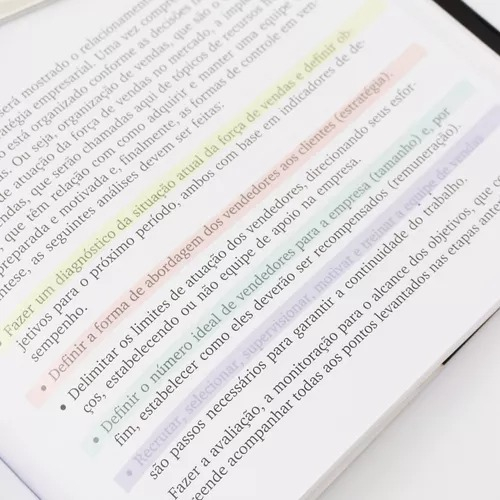 será mostrado o relacionamento
estratégia empresarial. Uma vez
está organizado conforme as decisões
Ou seja, organização de vendas, que são o
de atuação da força de vendas no mercado, a
vendas, que serão chamadas aqui de tópicos de recursos
que têm relação com como adquirir e manter uma equipe
preparada e motivada e, finalmente, as formas de controle em ven-
as seguintes análises devem ser feitas:
• Fazer um diagnóstico da situação atual da força de vendas e definir ob-
jetivos para o próximo período, ambos com base em indicadores de de-
sempenho.
• Definir a forma de abordagem dos vendedores aos clientes (estratégia).
• Delimitar os limites de atuação dos vendedores, direcionando seus esfor-
ços, estabelecendo ou não equipe de apoio na empresa.
• Definir o número ideal de vendedores para a empresa (tamanho) e, por
fim, estabelecer como eles deverão ser recompensados (remuneração).
• Recrutar, selecionar, supervisionar, motivar e treinar a equipe de vendas
são passos necessários para garantir a continuidade do trabalho.
Fazer a avaliação, a monitoração para o alcance dos objetivos, que
acompanhar todas ao pontos levantados nas etapas